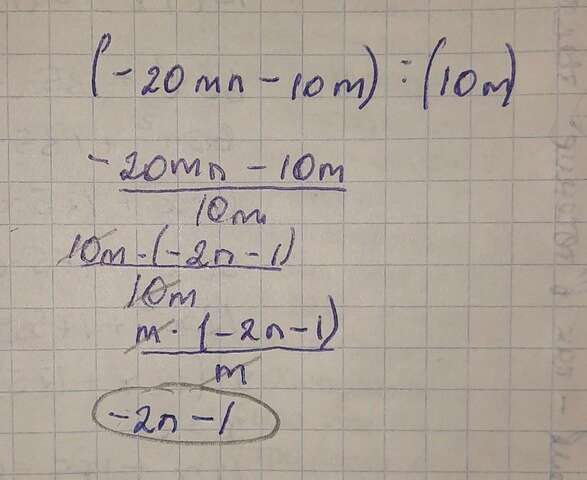 (-20mn - 10m) : (10m)
-20mn - 10m
10m
10m · (-2n - 1)
10m
m · (-2n - 1)
m
-2n - 1